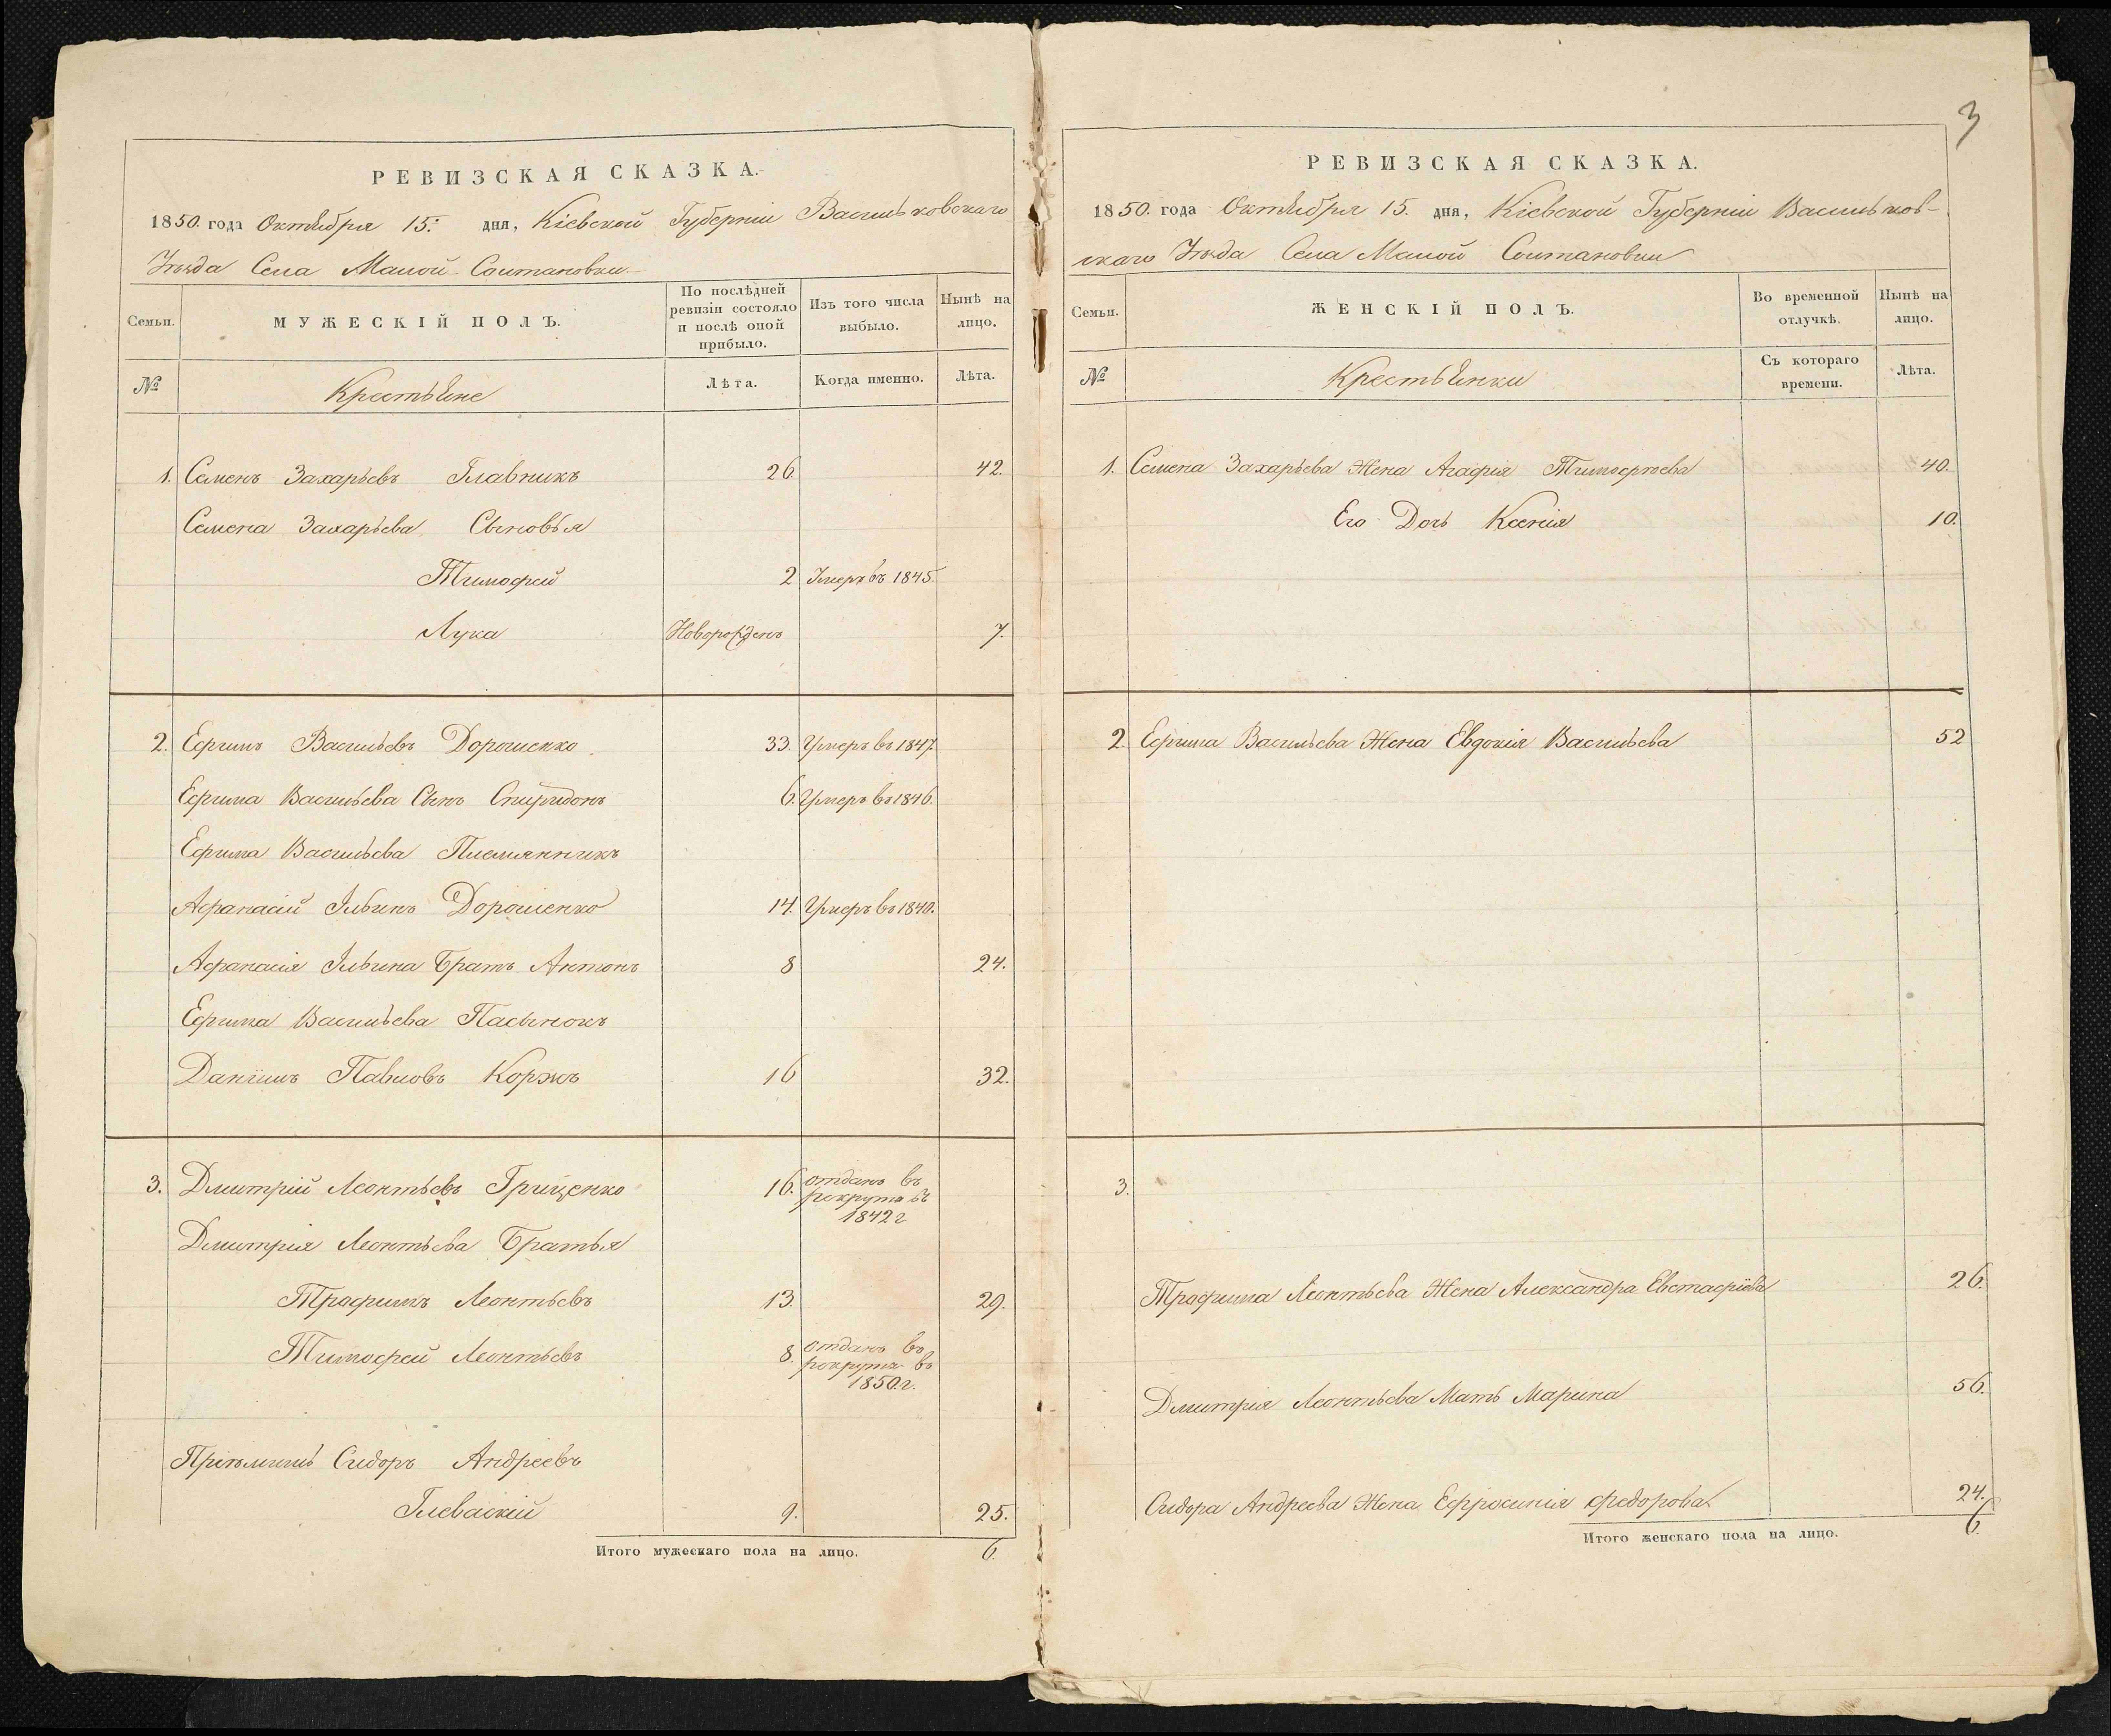 РЕВИЗСКАЯ СКАЗКА.
1850. года Октября 15. дня, Кіевской Губерніи Васильковскаго
Уѣзда Села Малой Солтановки
Семьи.
МУЖЕСКІЙ ПОЛЪ.
По послѣдней ревизіи состояло и послѣ оной прибыло.
Изъ того числа выбыло.
Нынѣ на лицо.
№
Крестьяне
Лѣта.
Когда именно.
Лѣта.
1. Семенъ Захарьевъ Главникъ 26. 42.
Семена Захарьева Сыновья
Тимофей 2 Умеръ въ 1845.
Лука Новорожденъ 7.
2. Ефимъ Васильевъ Дорошенко 33. Умеръ въ 1847.
Ефима Васильева Сынъ Спиридонъ 6. Умеръ въ 1846.
Ефима Васильева Племянникъ
Афанасій Ильинъ Дорошенко 14. Умеръ въ 1840.
Афанасія Ильина Братъ Антонъ 8 24.
Ефима Васильева Пасынокъ
Даніилъ Павловъ Коржъ 16 32.
3. Дмитрій Леонтьевъ Грищенко 16. отданъ въ
рекрута въ
1842 г.
Дмитрія Леонтьева Братья
Трофимъ Леонтьевъ 13. 29.
Тимофей Леонтьевъ 8. отданъ въ
рекрута въ
1850. г.
Пріемышъ Сидоръ Андреевъ
Глеваскій 9. 25.
Итого мужескаго пола на лицо. 6.
3
РЕВИЗСКАЯ СКАЗКА.
1850. года Октября 15. дня, Кіевской Губерніи Васильков-
скаго Уѣзда Села Малой Солтановки
Семьи.
ЖЕНСКІЙ ПОЛЪ.
Во временной отлучкѣ.
Нынѣ на лицо.
№
Крестьянки
Съ котораго времени.
Лѣта.
1. Семена Захарьева Жена Агафія Тимофеева 40.
Его Дочь Ксенія 10.
2. Ефима Васильева Жена Евдокія Васильева 52
3.
Трофима Леонтьева Жена Александра Евстафіева 26.
Дмитрія Леонтьева Мать Марина 56.
Сидора Андреева Жена Ефросинія Федорова 24.
Итого женскаго пола на лицо. 6.